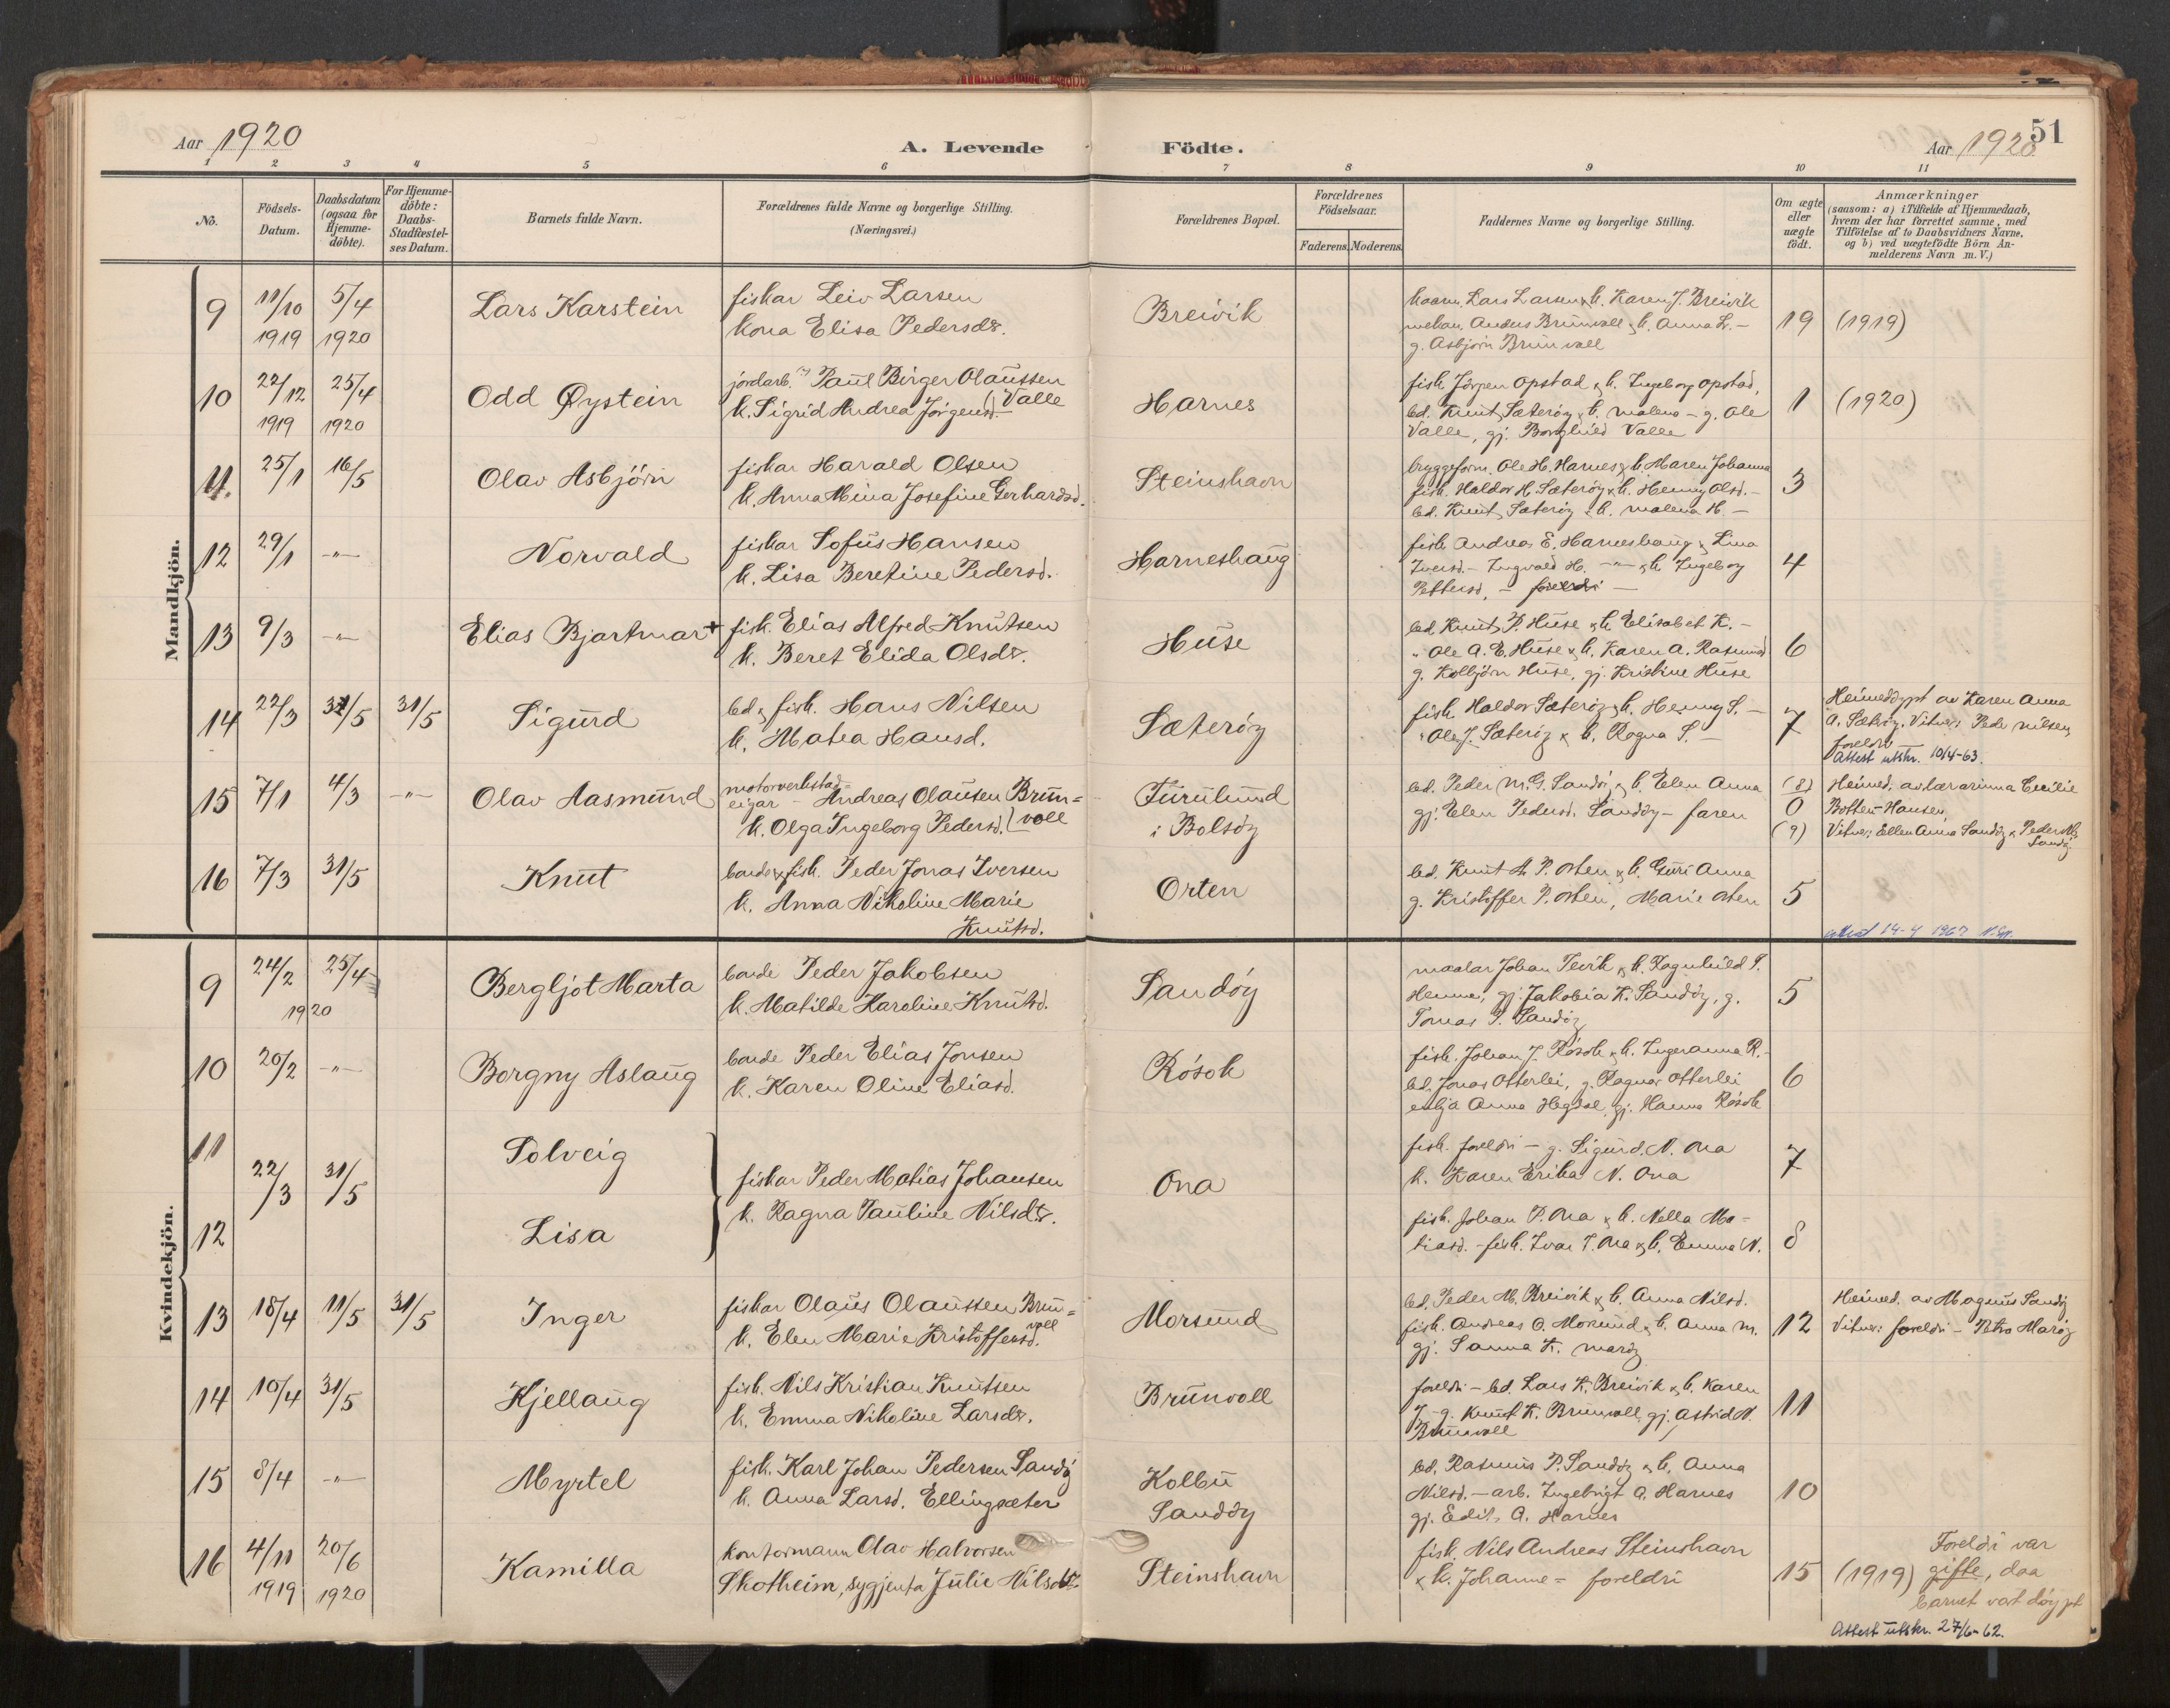 Aar 1920
A. Levende Födte.
Aar 1920
51
1 2 3 4 5 6 7 8 9 10 11
No.
Födsels-Datum.
Daabsdatum (ogsaa for Hjemme-döbte).
For Hjemme-döbte: Daabs-Stadfæstel-ses Datum.
Barnets fulde Navn.
Forældrenes fulde Navne og borgerlige Stilling. (Næringsvei.)
Forældrenes Bopæl.
Forældrenes Födselsaar.
Faderens. Moderens.
Faddernes Navne og borgerlige Stilling.
Om ægte eller uægte födt.
Anmærkninger
(saasom: a) i Tilfælde af Hjemmedaab,
hvem der har forrettet samme, med
Tilföielse af to Daabsvidners Navne,
og b) ved uægtefödte Börn An-
melderens Navn m. V.)
Mandkjön.
9 11/10 1919 5/4 1920 Lars Karstein
fiskar Leiv Larsen
kona Elisa Pedersdr.
Breivik
Lars Larsen & k. Karen J. Breivik
Anders Brunvoll & k. Anna L. –
g. Asbjörn Brunvoll
19 (1919)
10 22/12 1919 25/4 1920 Odd Øystein
jordarb. Paul Birger Olaussen
k. Sigrid Andrea Jörgensd. Valle
Harnes
fisk. Jörgen Opstad & k. Ingeborg Opstad,
bd. Knut Sæteröy & k. Malena – g. Ole
Valle, gj. Borghild Valle
1 (1920)
11. 25/1 16/5 Olav Asbjörn
fiskar Harald Olsen
k. Anna Mina Josefine Gerhardsd.
Steinshavn
bryggeform. Ole H. Harnes & k. Maren Johanna
fisk. Haldor H. Sæteröy & k. Henny Olsd. –
bd. Knut Sæteröy & k. Malena H. –
3
12 29/1 –"– Norvald
fiskar Sofus Hansen
k. Lisa Beretine Pedersd.
Harneshaug
fisk. Andreas E. Harneshaug & Lina
Iversd. – Ingvald H. –"– & k. Ingeborg
Pettersd. – foreldri –
4
13 9/3 –"– Elias Bjartmar +
fisk. Elias Alfred Knutsen
k. Beret Elida Olsdr.
Huse
bd. Knut P. Huse & k. Elisabet K. –
" Ole A. E. Huse & k. Karen A. Rasmusd
g. Kolbjörn Huse, gj. Kristine Huse
6
14 22/3 31/5 31/5 Sigurd
bd. & fisk. Hans Nilsen
k. Matea Hansd.
Sæteröy
fisk. Haldor Sæteröy & k. Henny S. –
" Ole J. Sæteröy & k. Ragna S. –
7
Heimedöypt av Karen Anna
A. Sæteröy. Vitner: Peder Nilsen,
foreldri
Attest utskr. 10/4-63.
15 7/1 4/3 –"– Olav Aasmund
motorverkstad-
eigar – Andreas Olausen Brun=
k. Olga Ingeborg Pedersd. (voll
Furulund
i Bolsöy
bd. Peder M. G. Sandöy & k. Elen Anna
gj. Elen Pedersd. Sandöy – faren
(8)
0
(9)
Heimed. av lærarinna Cecilie
Botten-Hansen,
Vitner: Ellen Anna Sandöy & Peder M.
Sandöy
16 7/3 31/5 Knut
bonde & fisk. Peder Jonas Iversen
k. Anna Nikoline Marie
Knutsd.
Orten
bd. Knut A. P. Orten & k. Guri Anna
g. Kristoffer P. Orten, Marie Orten
5
14-4 1967
Kvindekjön.
9 24/2 25/4 1920 Bergljot Marta
bonde Peder Jakobsen
k. Matilde Karoline Knutsd.
Sandöy
maalar Johan Tevik & k. Ragnhild P.
gj. Jakobia K. Sandöy, g.
Tomas P. Sandöy
5
10 20/2 –"– Borgny Aslaug
bonde Peder Elias Jonsen
k. Karen Oline Eliasd.
Rösok
fisk. Johan J. Rösok & k. Ingeranna R. –
bd. Jonas Otterlei, g. Ragnar Otterlei
enkja Anna Hegdal, gj. Hanna Rösok
6
11 Solveig
22/3 31/5
12 Lisa
fiskar Peder Matias Johansen
k. Ragna Pauline Nilsdtr.
Ona
fisk. foreldri – g. Sigurd N. Ona
k. Karen Erika N. Ona
7
fisk. Johan P. Ona & k. Nella Ma-
tiasd. – fisk. Ivar T. Ona & k. Emma N.
8
13 18/4 11/5 31/5 Inger
fiskar Olaus Olaussen Brun=
k. Elen Marie Kristoffersd. voll
Morsund
bd. Peder M. Breivik & k. Anna Nilsd.
fisk. Andreas O. Morsund & k. Anna M.
gj. Sanna K. Maröy
12
Heimed. av Magnus Sandöy
Vitner: foreldri – Petra Maröy
14 10/4 31/5 Kjellaug
fisk. Nils Kristian Knutsen
k. Emma Nikoline Larsdr.
Brunvoll
foreldri – bd. Lars K. Breivik & k. Karen
J. – g. Knut K. Brunvoll, gj. Astrid N.
Brunvoll
11
15 8/4 –"– Myrtel
fisk. Karl Johan Pedersen Sandöy
k. Anna Larsd. Ellingsæter
Kolbu
Sandöy
bd. Rasmus P. Sandöy & k. Anna
Nilsd. – arb. Ingebrigt A. Harnes
gj. Edit A. Harnes
10
16 4/11 1919 20/6 1920 Kamilla
Kontormann Olav Halvorsen
Skotheim, sygjenta Julie Nilsdtr.
Steinshavn
fisk. Nils Andreas Steinshavn
& k. Johanne – foreldri
15 (1919)
Foreldri var
gifte, daa
barnet vart döypt
Attest utskr. 27/6-62.